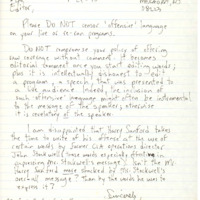 Editor,
Please DO NOT censor 'offensive' language
on your live or re-run programs.
DO NOT compromise your policy of offering
raw coverage without comment. It becomes
editorial comment once you start editing words;
plus it is intellectually dishonest to "edit"
a program, a speech, that was presented to
a live audience. Indeed, the inclusion of
such 'offensive' language might often be instrumental
to the message of the speaker; otherwise
it is revelatory of the speaker.
I am disappointed that Harry Sanford takes
the time to write of his offense at the use of
certain words by former CIA operations director
John Stockwell; those words especially effective in
supporting Mr. Stockwell's message. Isn't the Mr.
Harry Sanford more shocked by Mr. Stockwell's
overall message? than by the words he uses to
express it?
Sincerely,